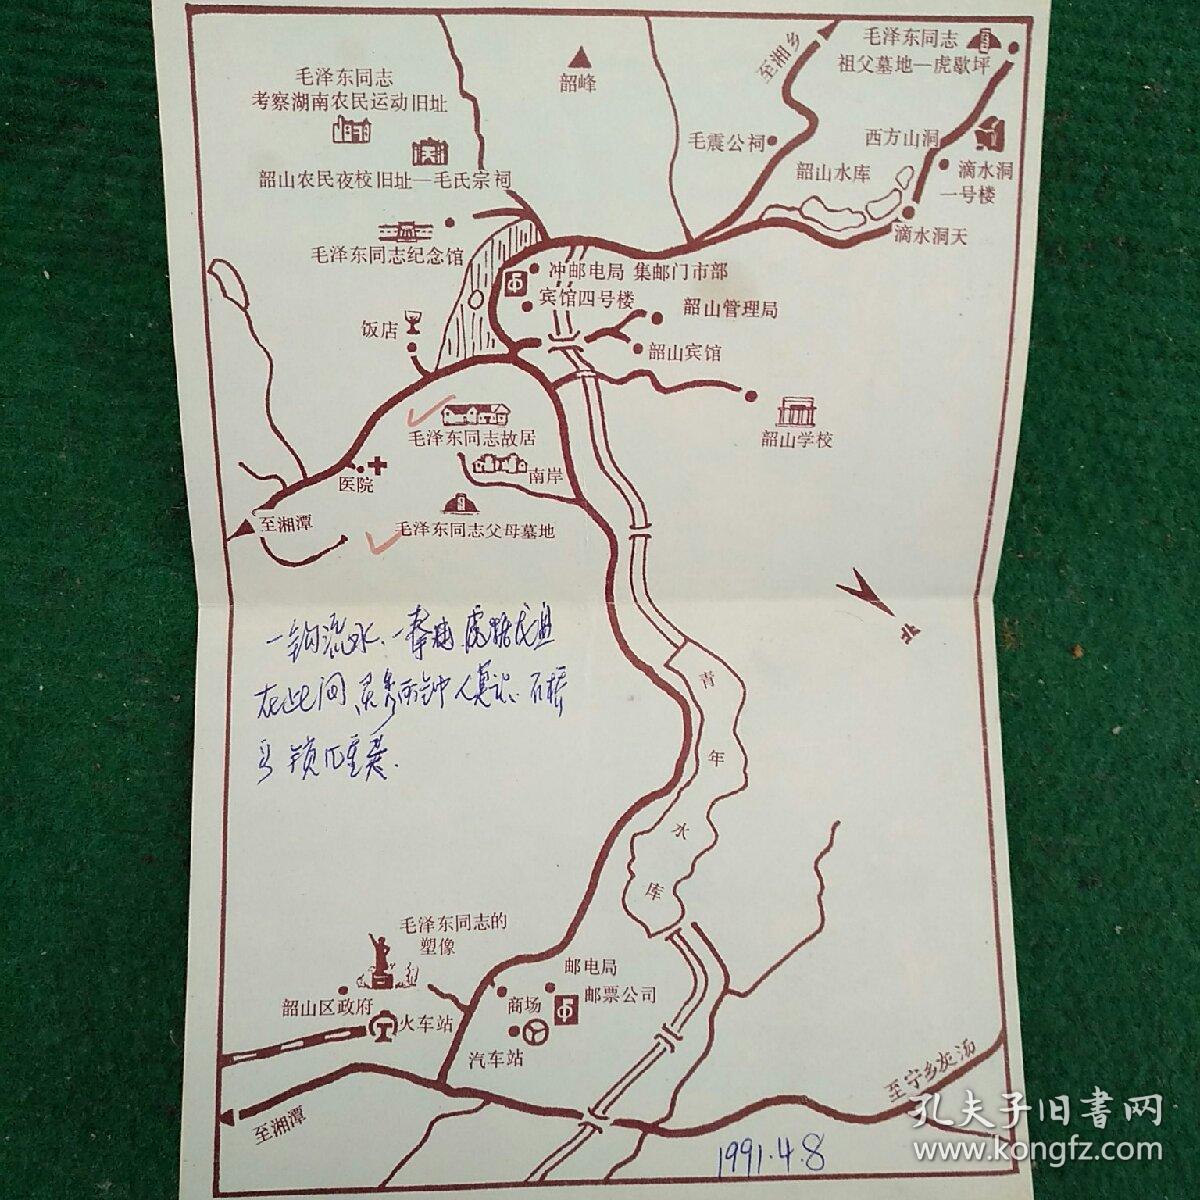 毛泽东同志
考察湖南农民运动旧址
韶峰
至湘乡
毛泽东同志
祖父墓地—虎歇坪
毛震公祠
西方山洞
韶山水库
滴水洞
一号楼
滴水洞天
韶山农民夜校旧址—毛氏宗祠
毛泽东同志纪念馆
冲邮电局 集邮门市部
宾馆四号楼
韶山管理局
饭店
韶山宾馆
毛泽东同志故居
韶山学校
南岸
医院
至湘潭
毛泽东同志父母墓地
北
一钩流水、一拳山 虎踞龙盘
在此间 灵秀所钟人莫识、石桥
锁几重寰.
青年水库
毛泽东同志的
塑像
邮电局
韶山区政府
商场
邮票公司
火车站
汽车站
至宁乡灰汤
至湘潭
1991.4.8
孔夫子旧书网
www.kongfz.com